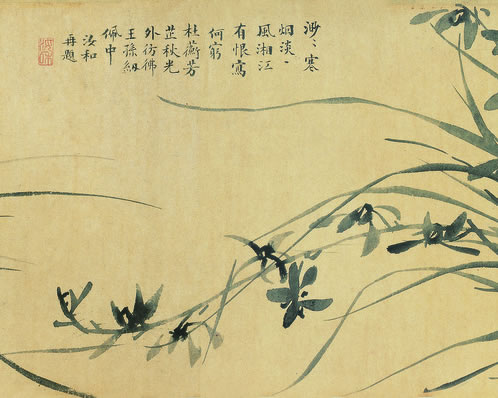 渺〻寒
烟淡〻
風湘江
有恨寫
何窮
杜蘅芳
芷秋光
外彷彿
王孫紉
佩中
汝和
再題